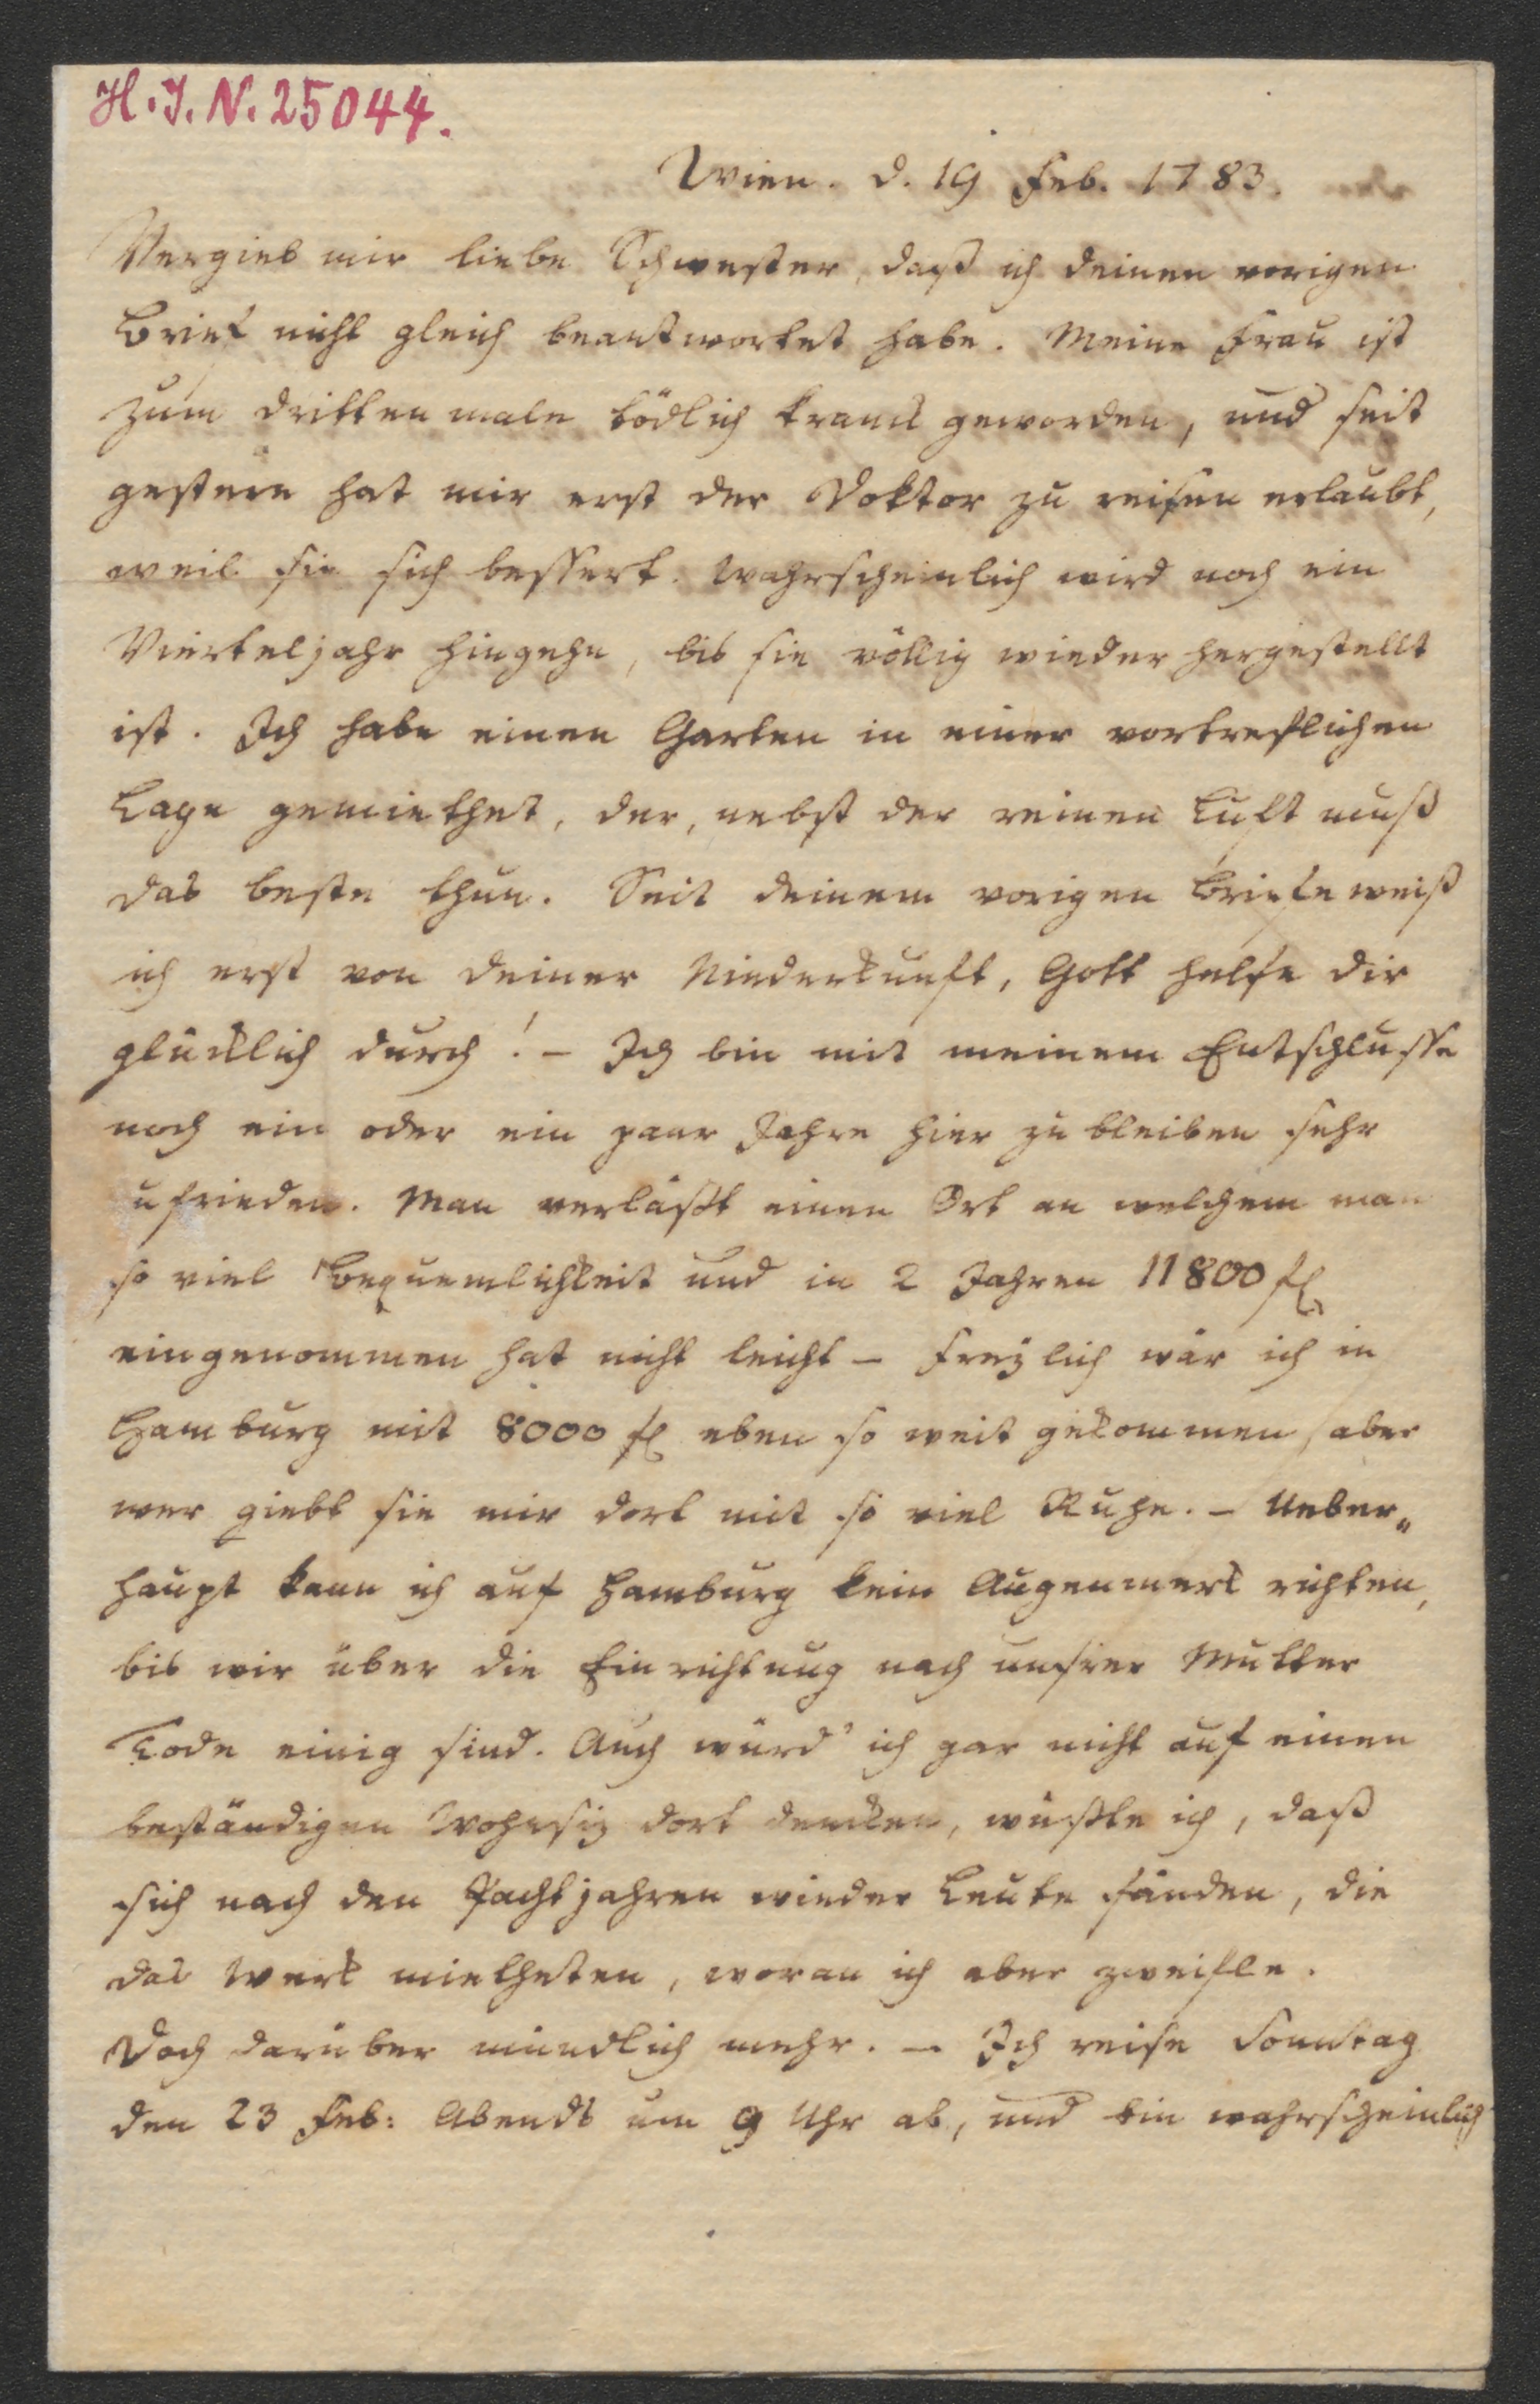 H.I.N. 25044.
Wien. d. 19 Feb. 1783.
Vergieb mir liebe Schwester, daß ich deinen vorigen
Brief nicht gleich beantwortet habe. Meine Frau ist
zum dritten male tödlich kranck geworden, und seit
gestern hat mir erst der Doktor zu reisen erlaubt,
weil sie sich bessert. Wahrscheinlich wird noch ein
Vierteljahr hingehn, bis sie völlig wieder hergestellt
ist. Ich habe einen Garten in einer vortreflichen
Lage gemiethet, der, nebst der reinen Luft muß
das beste thun. Seit deinem vorigen Briefe weiß
ich erst von deiner Niederkunft, Gott helfe dir
glücklich durch! – Ich bin mit meinem Entschlusse
noch ein oder ein paar Jahre hier zu bleiben sehr
ufrieden. Man verläßt einen Ort an welchem man
so viel Bequemlichkeit und in 2 Jahren 11800 fl
eingenommen hat nicht leicht – Freylich wär ich in
Hamburg mit 8000 fl eben so weit gekommen, aber
wer giebt sie mir dort mit so viel Ruhe. – Ueber„
haupt kann ich auf Hamburg kein Augenmerk richten,
bis wir über die Einrichtung nach unsrer Mutter
Tode einig sind. Auch würd' ich gar nicht auf einen
beständigen Wohnsiz dort dencken, wüßte ich, daß
sich nach den Pachtjahren wieder Leute fänden, die
das Werk mietheten, woran ich aber zweifle.
Doch darüber mündlich mehr. – Ich reise Sonntag
den 23 Feb: Abends um 9 Uhr ab, und bin wahrscheinlich